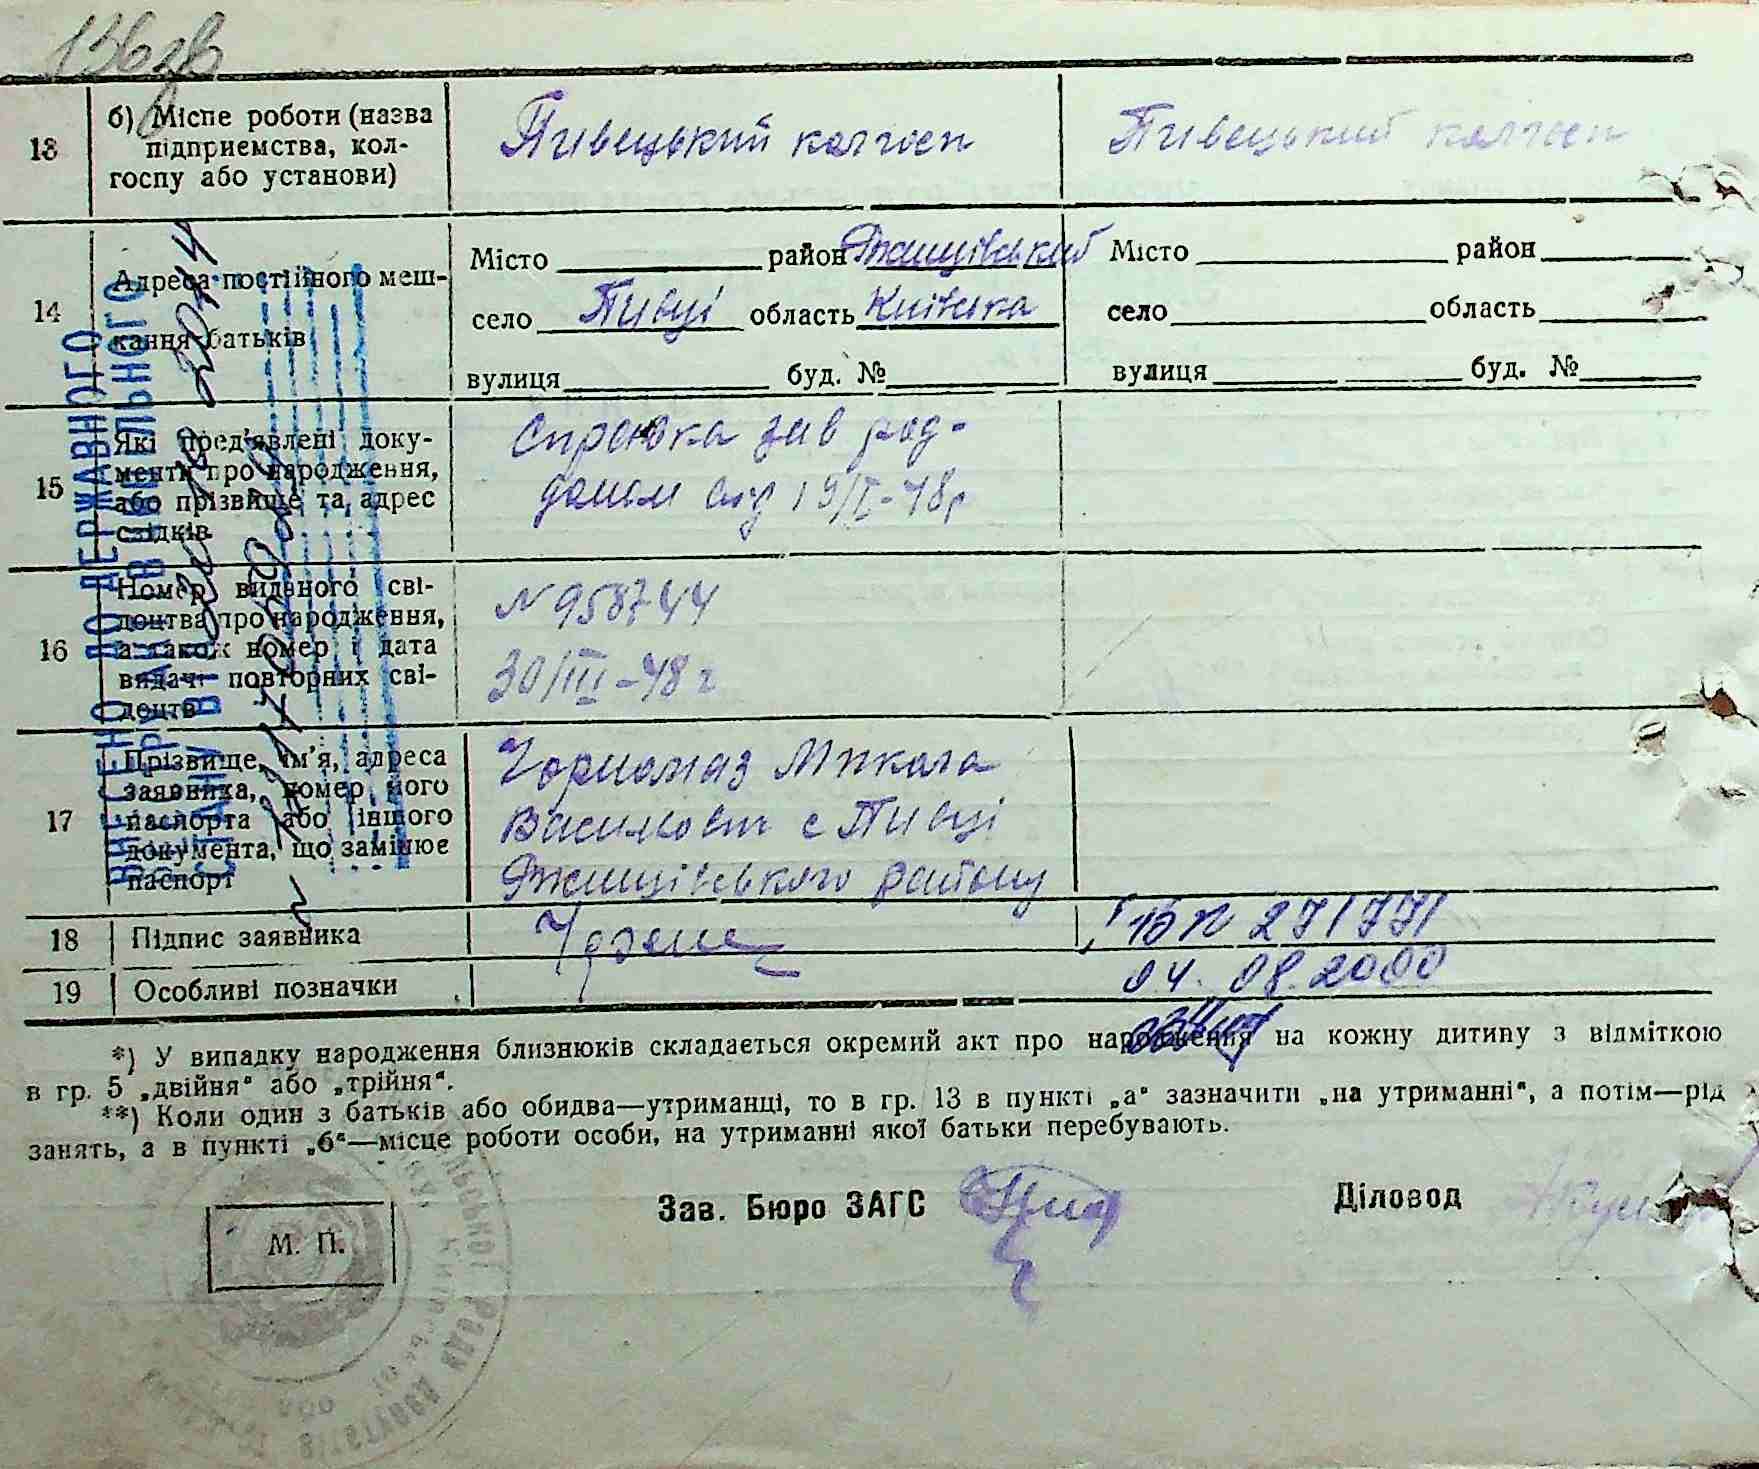 136 зв
13
б) Місце роботи (назва
підприємства, кол-
госпу або установи)
Пивецький колгосп
Пивецький колгосп
14
Адреса постійного меш-
кання батьків
Місто район Ржищівський
село Пивці область Київська
вулиця буд. №
Місто район
село область
вулиця буд. №
15
Які пред'явлені доку-
менти про народження,
або прізвище та адрес
свідків
зав род-
домом 19/I-48р
16
Номер виданого сві-
доцтва про народження,
а також номер і дата
видачі повторних сві-
доцтв
N 958744
30/III-48 г
17
Прізвище, ім'я, адреса
заявника, номер його
паспорта або іншого
документа, що замінює
паспорт
Чорномаз Микола
Васильович с Пивці
Ржищівського району
18
Підпис заявника
271771
19
Особливі позначки
04.08.2000
*) У випадку народження близнюків складається окремий акт про народження на кожну дитину з відміткою
в гр. 5 „двійня“ або „трійня“.
**) Коли один з батьків або обидва—утриманці, то в гр. 13 в пункті „а“ зазначити „на утриманні“, а потім—рід
занять, а в пункті „б“—місце роботи особи, на утриманні якої батьки перебувають.
Зав. Бюро ЗАГС
Діловод
М. П.
ВНЕСЕНО ДО ДЕРЖАВНОГО